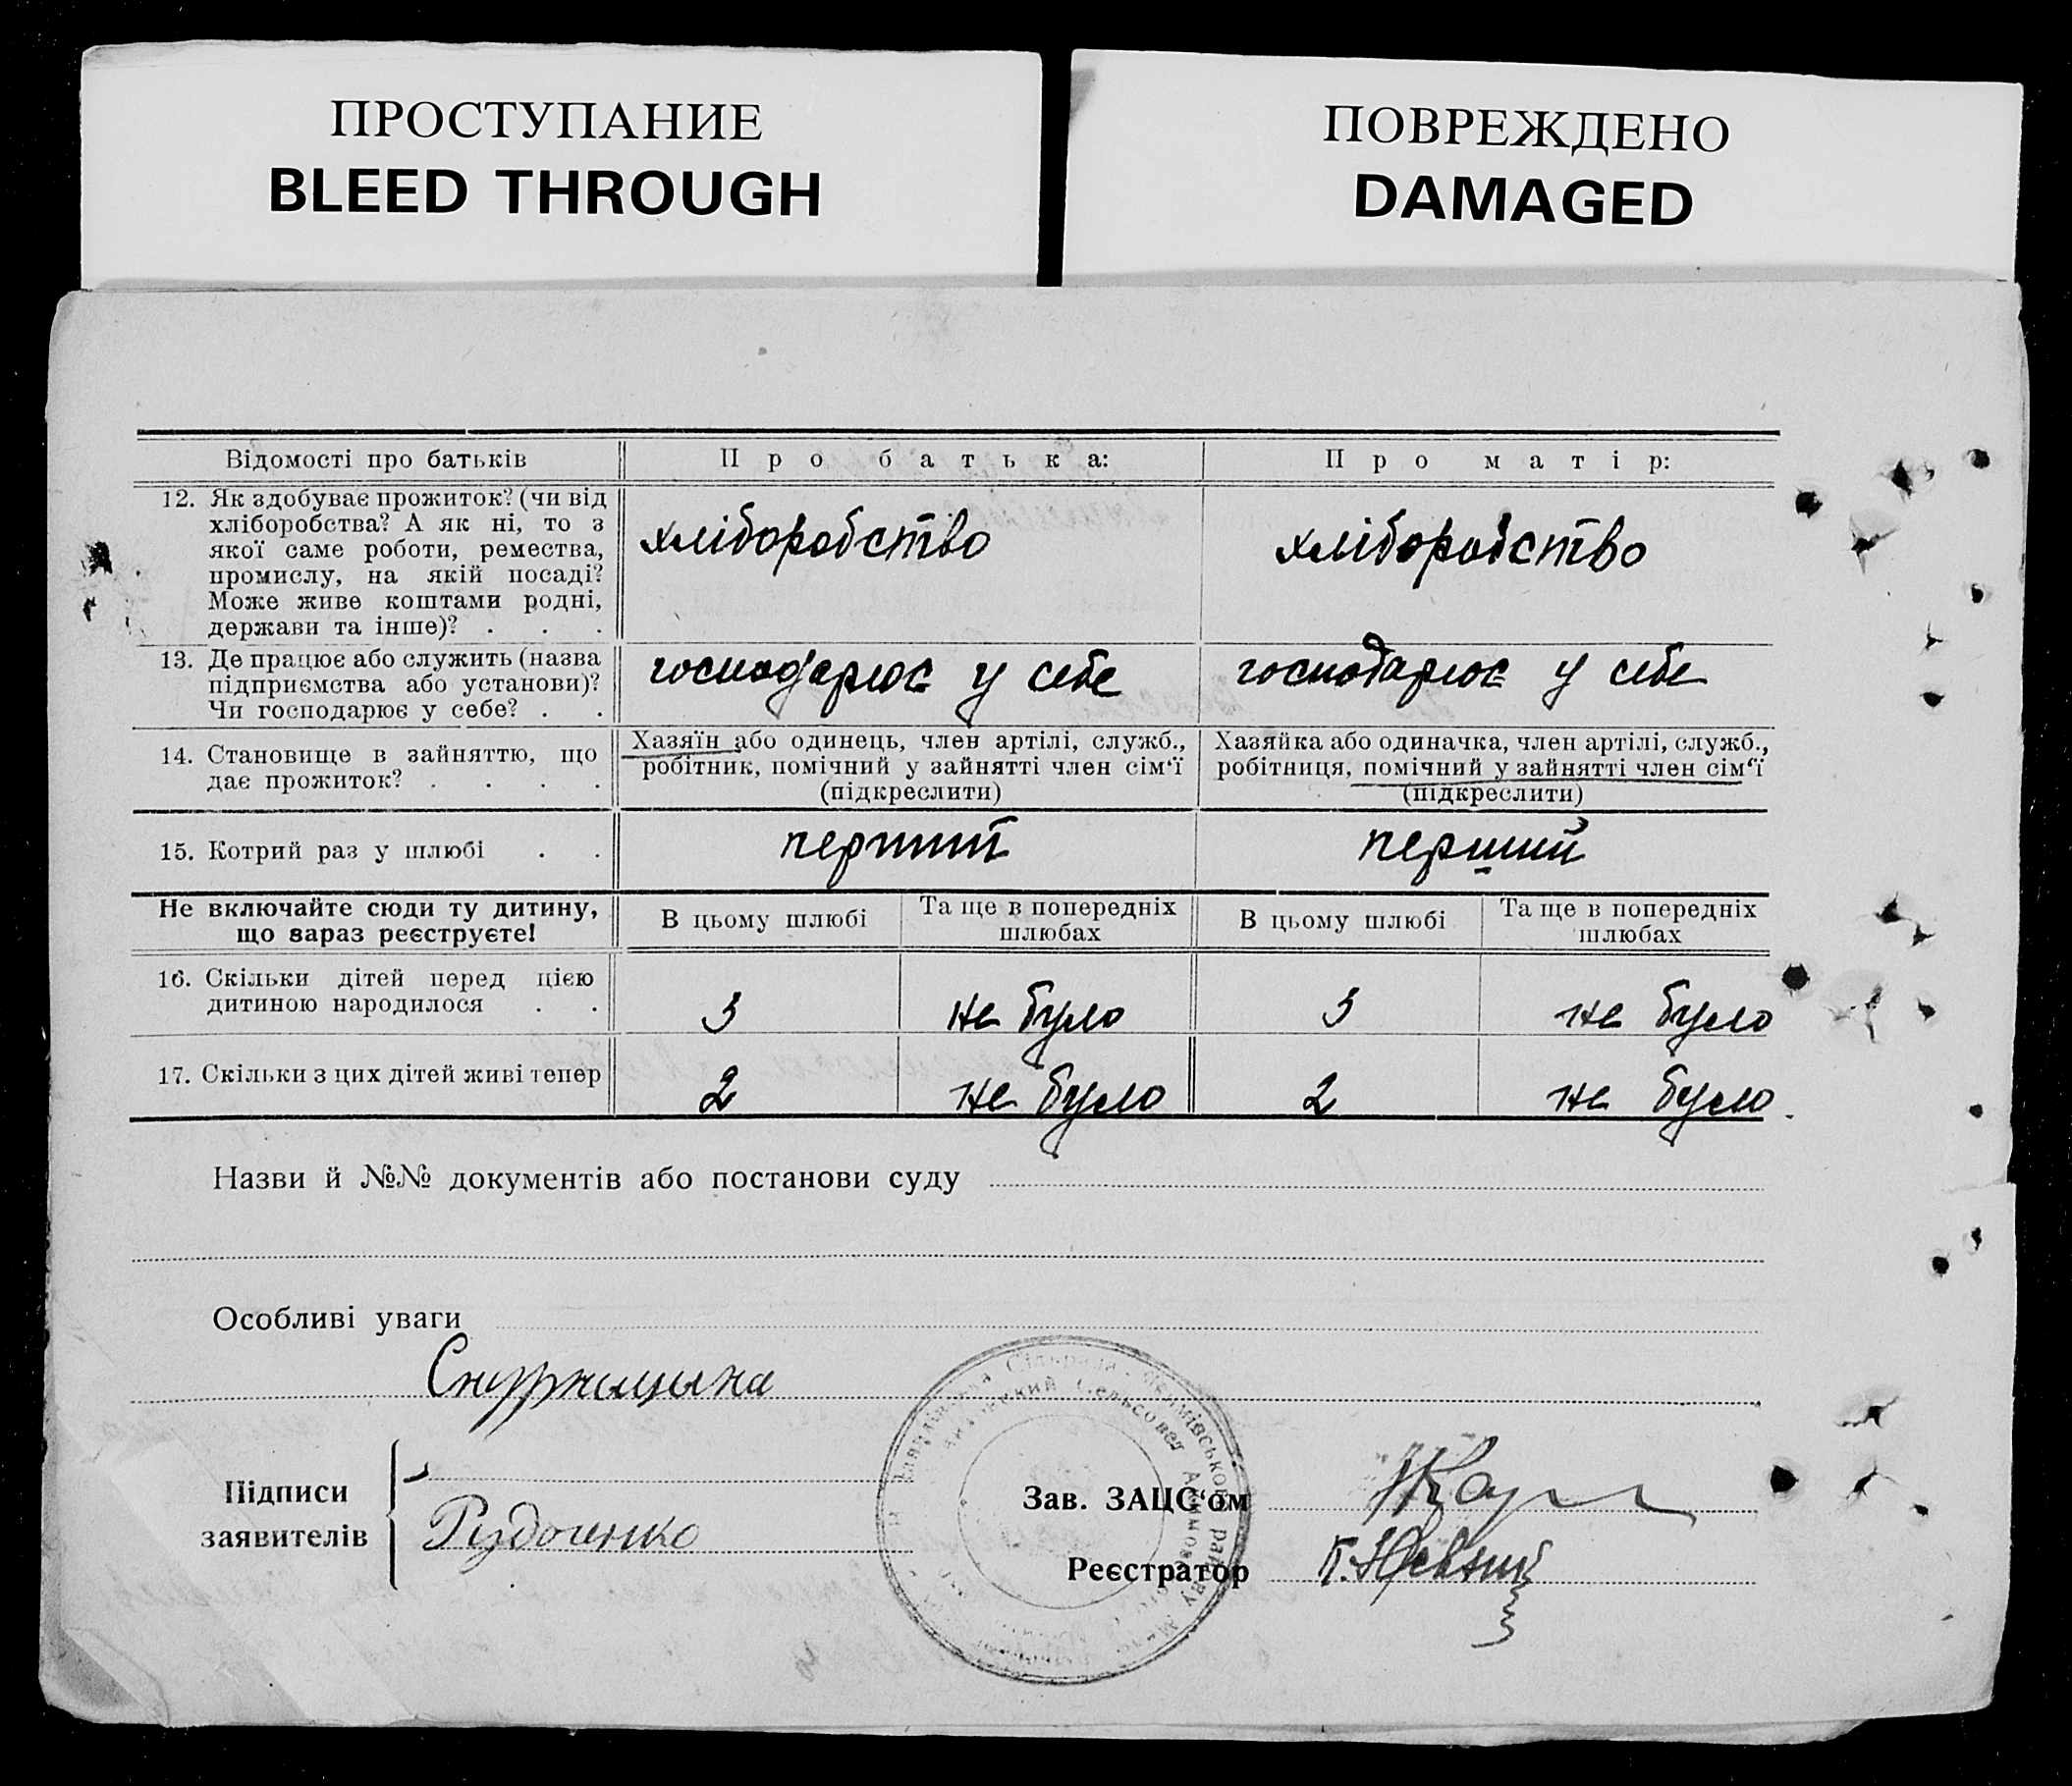 ПРОСТУПАНИЕ
BLEED THROUGH
ПОВРЕЖДЕНО
DAMAGED
Відомості про батьків
Про батька:
Про матір:
12. Як здобуває прожиток? (чи від
хліборобства? А як ні, то з
якої саме роботи, ремества,
промислу, на якій посаді?
Може живе коштами родні,
держави та інше)? . . .
хліборобство
хліборобство
13. Де працює або служить (назва
підприємства або установи)?
Чи господарює у себе? . .
господарює у себе
господарює у себе
14. Становище в зайняттю, що
дає прожиток? . . . .
Хазяїн або одинець, член артілі, служб.,
робітник, помічний у зайнятті член сім‘ї
(підкреслити)
Хазяйка або одиначка, член артілі, служб.,
робітниця, помічний у зайнятті член сім‘ї
(підкреслити)
15. Котрий раз у шлюбі . .
перший
перший
Не включайте сюди ту дитину,
що зараз реєструєте!
В цьому шлюбі
Та ще в попередніх
шлюбах
В цьому шлюбі
Та ще в попередніх
шлюбах
16. Скільки дітей перед цією
дитиною народилося . .
3
не було
3
не було
17. Скільки з цих дітей живі тепер
2
не було
2
не було
Назви й №№ документів або постанови суду
Особливі уваги
Підписи
заявителів
Зав. ЗАЦС‘ом
Реєстратор
Сільрада
сельсовет
району